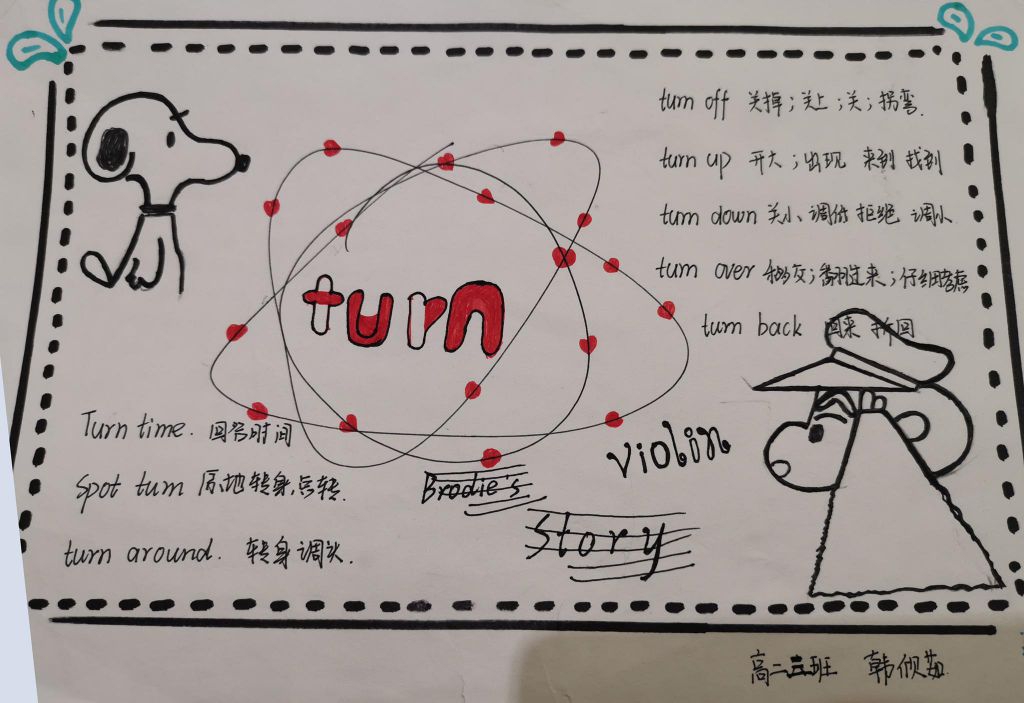 turn off 关掉；关上；关；拐弯.
turn up 开大；出现 来到 找到
turn down 关小、调低 拒绝 调小
turn over 移交；翻过来；仔细考虑
turn back 回来 折回
turn
Turn time. 回答时间
Spot turn 原地转身、点转.
turn around. 转身 调头.
Violin
Brodie's
Story
高二三班 韩